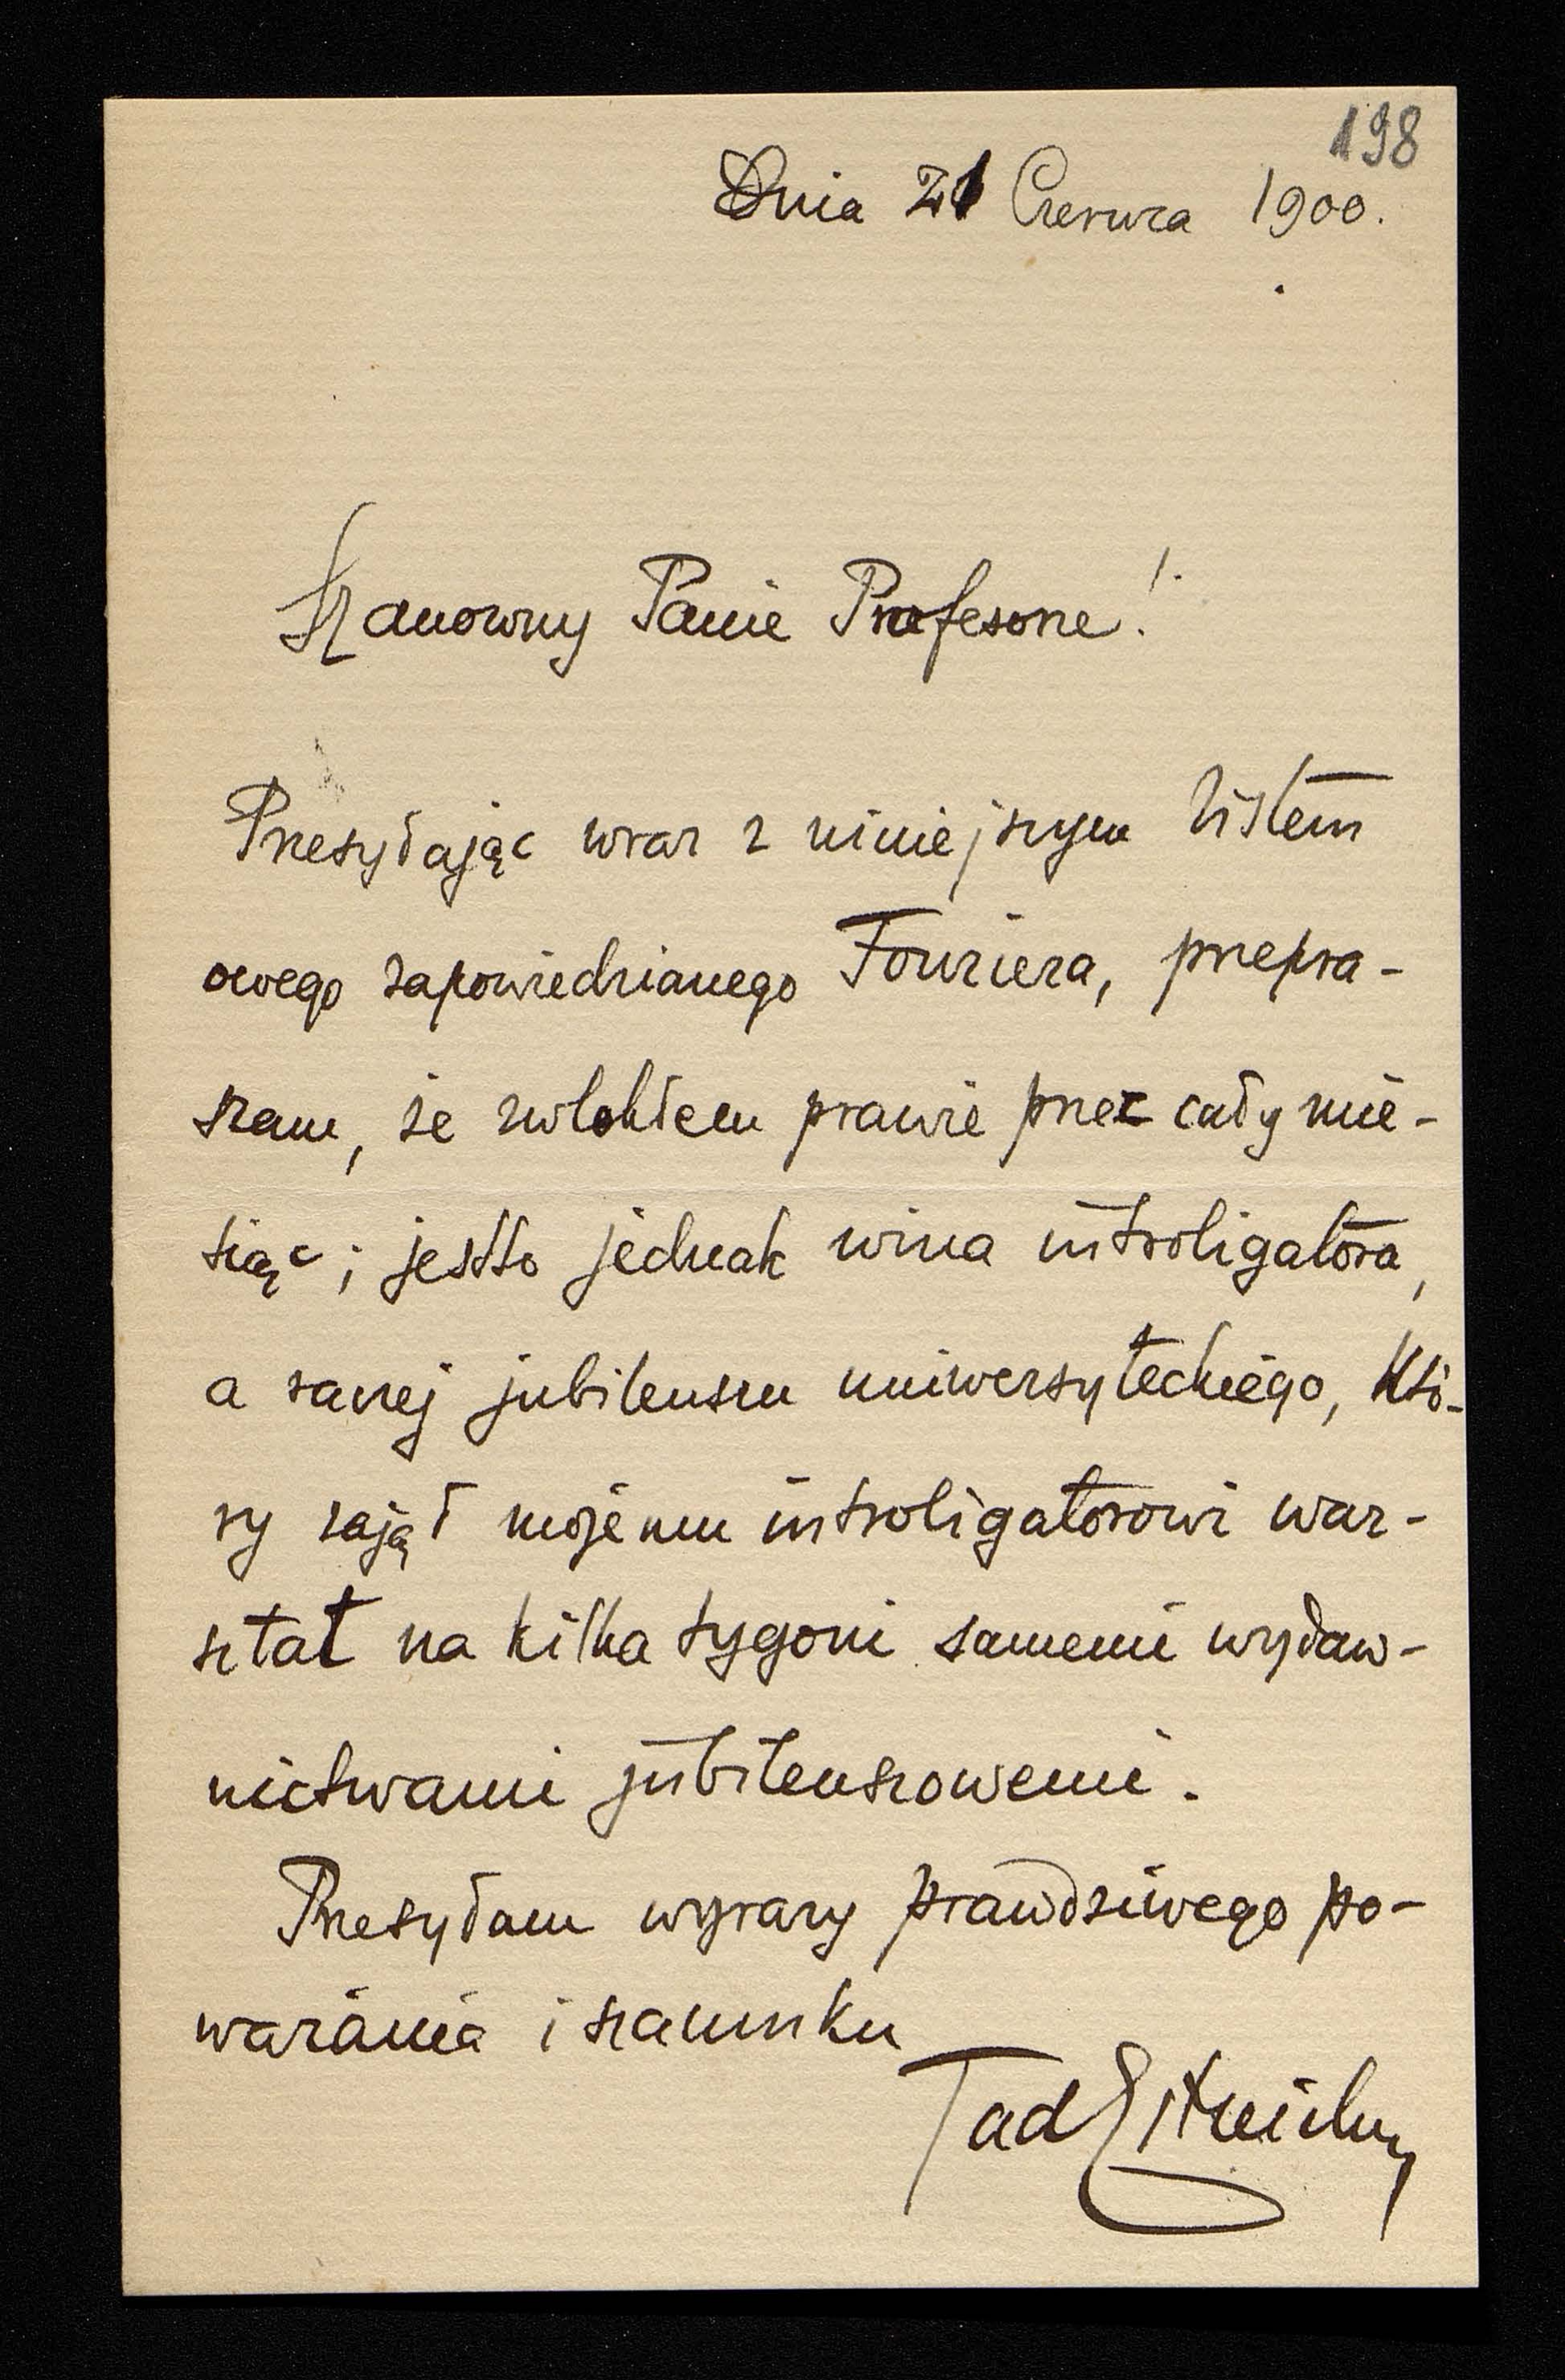 198
Dnia 21 Czerwca 1900.
Szanowny Panie Profesorze!
Przesyłając wraz z niniejszym listem
owego zapowiedzianego Fouriera, przepra-
szam, że zwlokłem prawie przez cały mie-
siąc; jestto jednak wina introligatora,
a raczej jubileuszu uniwersyteckiego, któ-
ry zajął mojemu introligatorowi war-
sztat na kilka tygoni samemi wydaw-
nictwami jubileuszowemi.
Przesyłam wyrazy prawdziwego po-
ważania i szacunku
Tad Estreicher